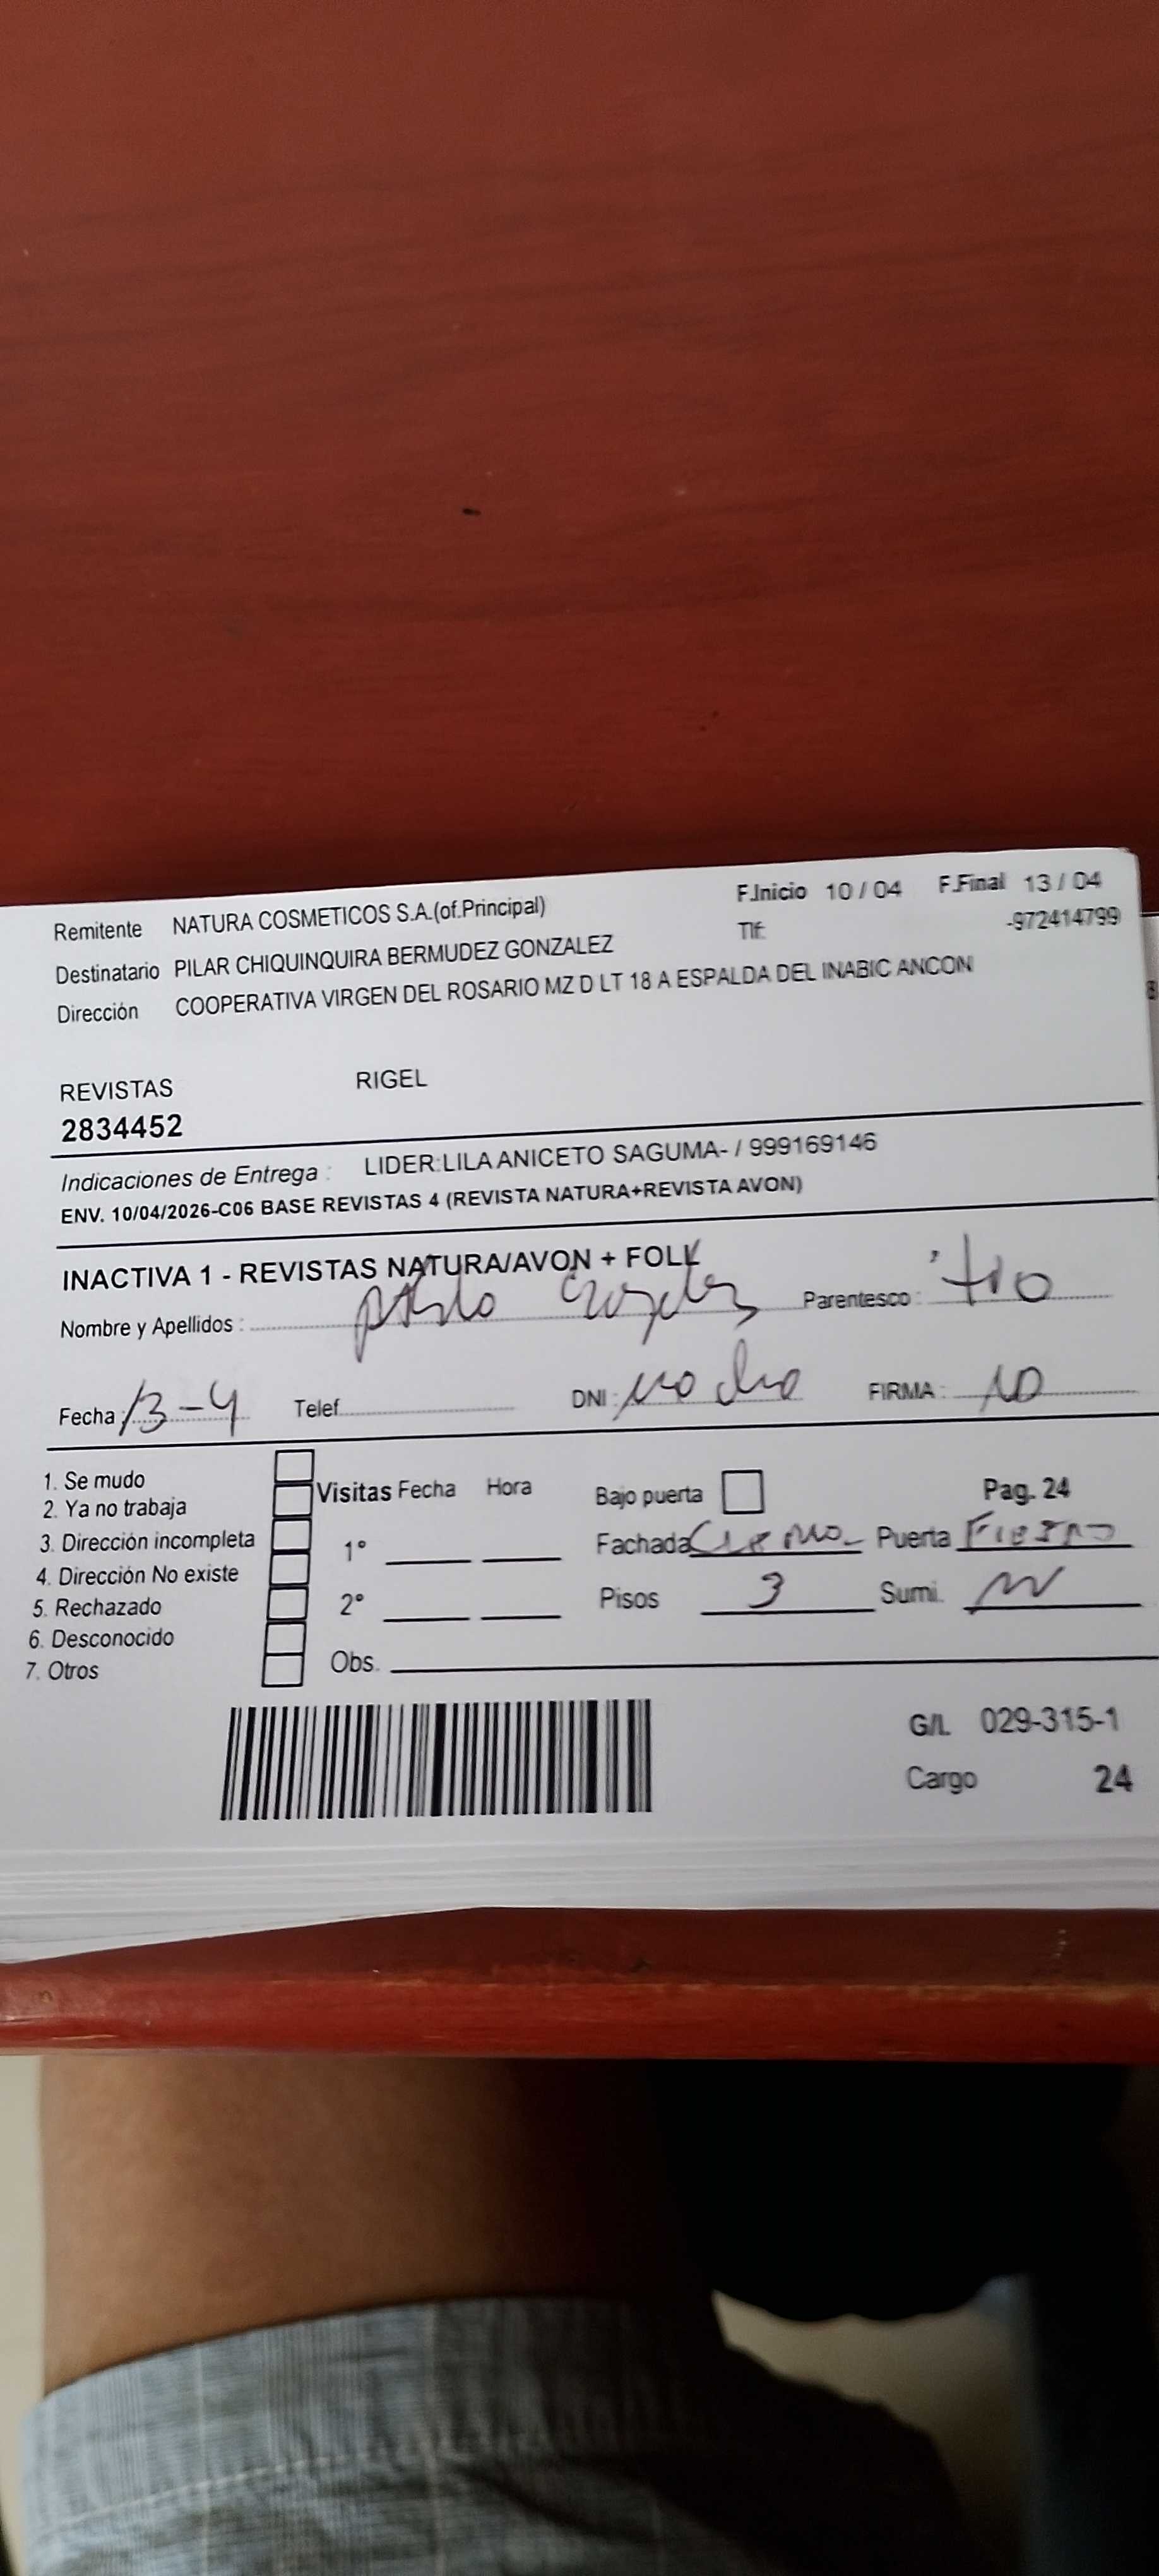 Remitente NATURA COSMETICOS S.A.(of.Principal) F.Inicio 10 / 04 F.Final 13 / 04
Destinatario PILAR CHIQUINQUIRA BERMUDEZ GONZALEZ Tlf: -972414799
Dirección COOPERATIVA VIRGEN DEL ROSARIO MZ D LT 18 A ESPALDA DEL INABIC ANCON
REVISTAS RIGEL
2834452
Indicaciones de Entrega : LIDER:LILA ANICETO SAGUMA- / 999169146
ENV. 10/04/2026-C06 BASE REVISTAS 4 (REVISTA NATURA+REVISTA AVON)
INACTIVA 1 - REVISTAS NATURA/AVON + FOLL
Nombre y Apellidos : Pablo Parentesco : tio
Fecha : 13-4 Telef. DNI : no dio FIRMA : NO
1. Se mudo
2. Ya no trabaja Visitas Fecha Hora Bajo puerta Pag. 24
3. Dirección incompleta 1° Fachada Crema Puerta Fierro
4. Dirección No existe
5. Rechazado 2° Pisos 3 Sumi.
6. Desconocido
7. Otros Obs.
G/L 029-315-1
Cargo 24